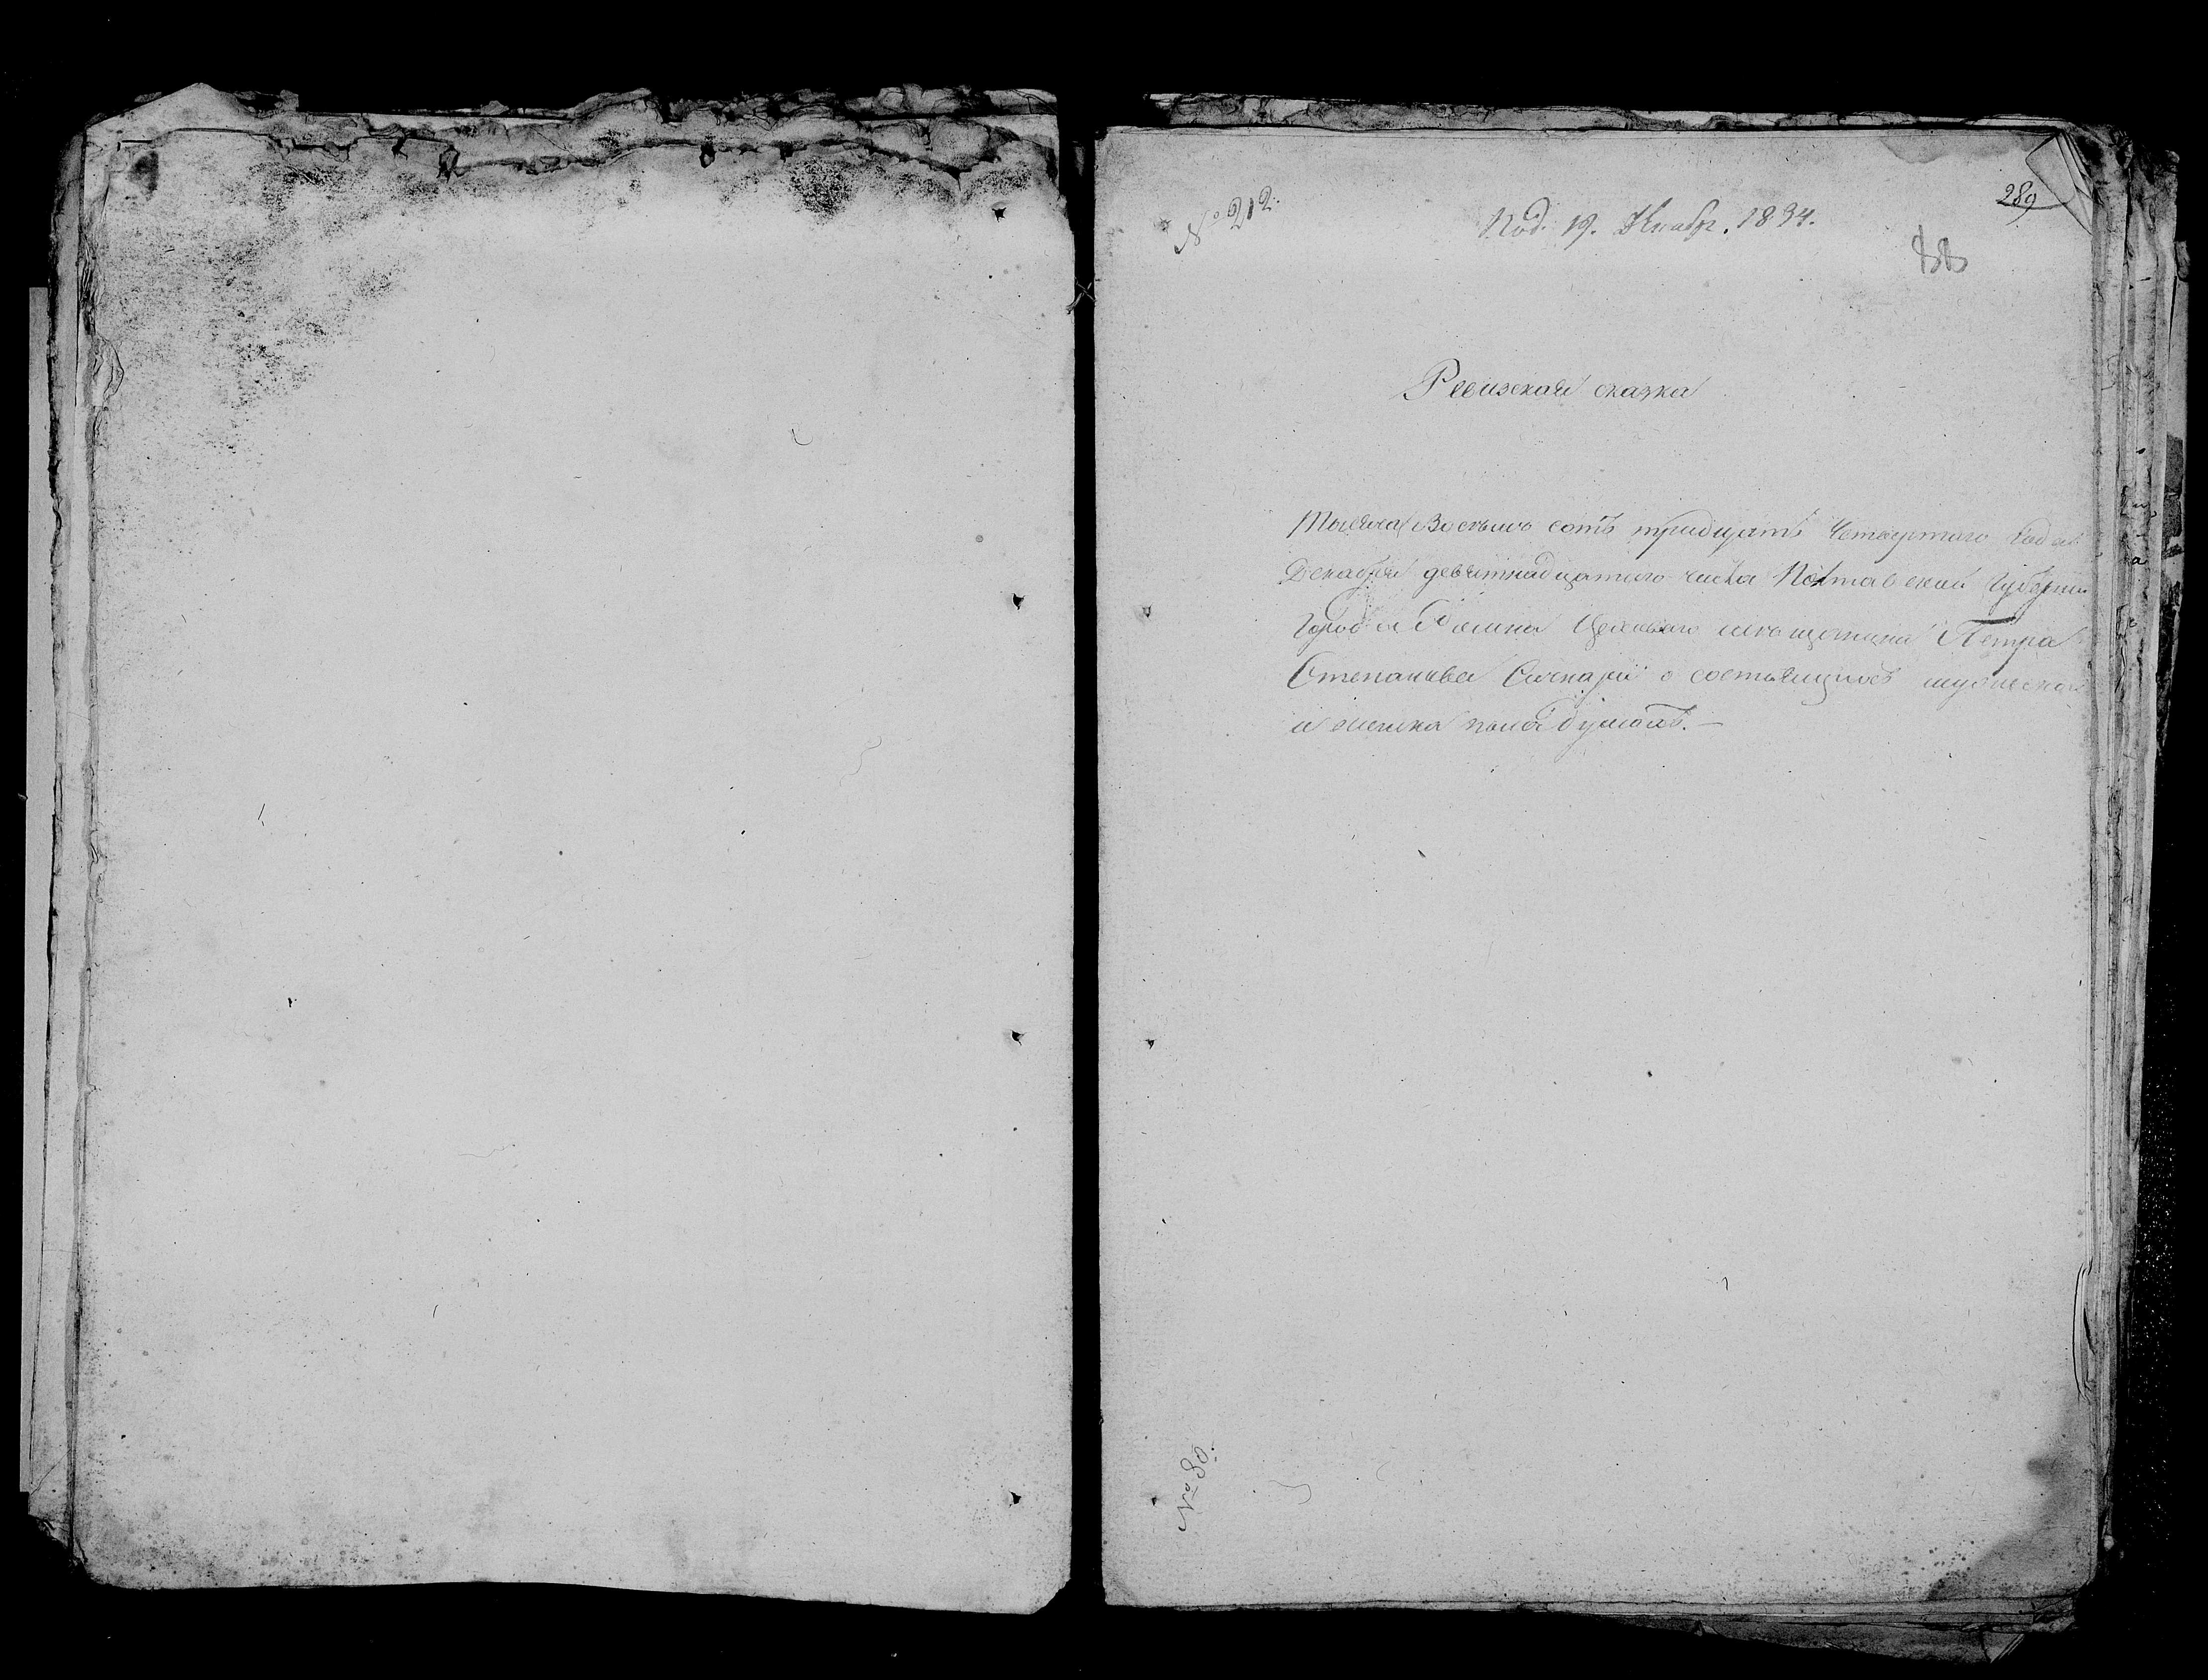 № 212.
289
Под. 19. Декабр. 1834.
88
Ревизская сказка
Тысяча Восемь сотъ тридцать Четвертого Года
Декабря девятнадцатого числа Полтавской Губернии
Города Ромна Цеховаго мещанина Петра
Степанова о состоящихъ мужеска
и женска пола душахъ. —
№ 80.